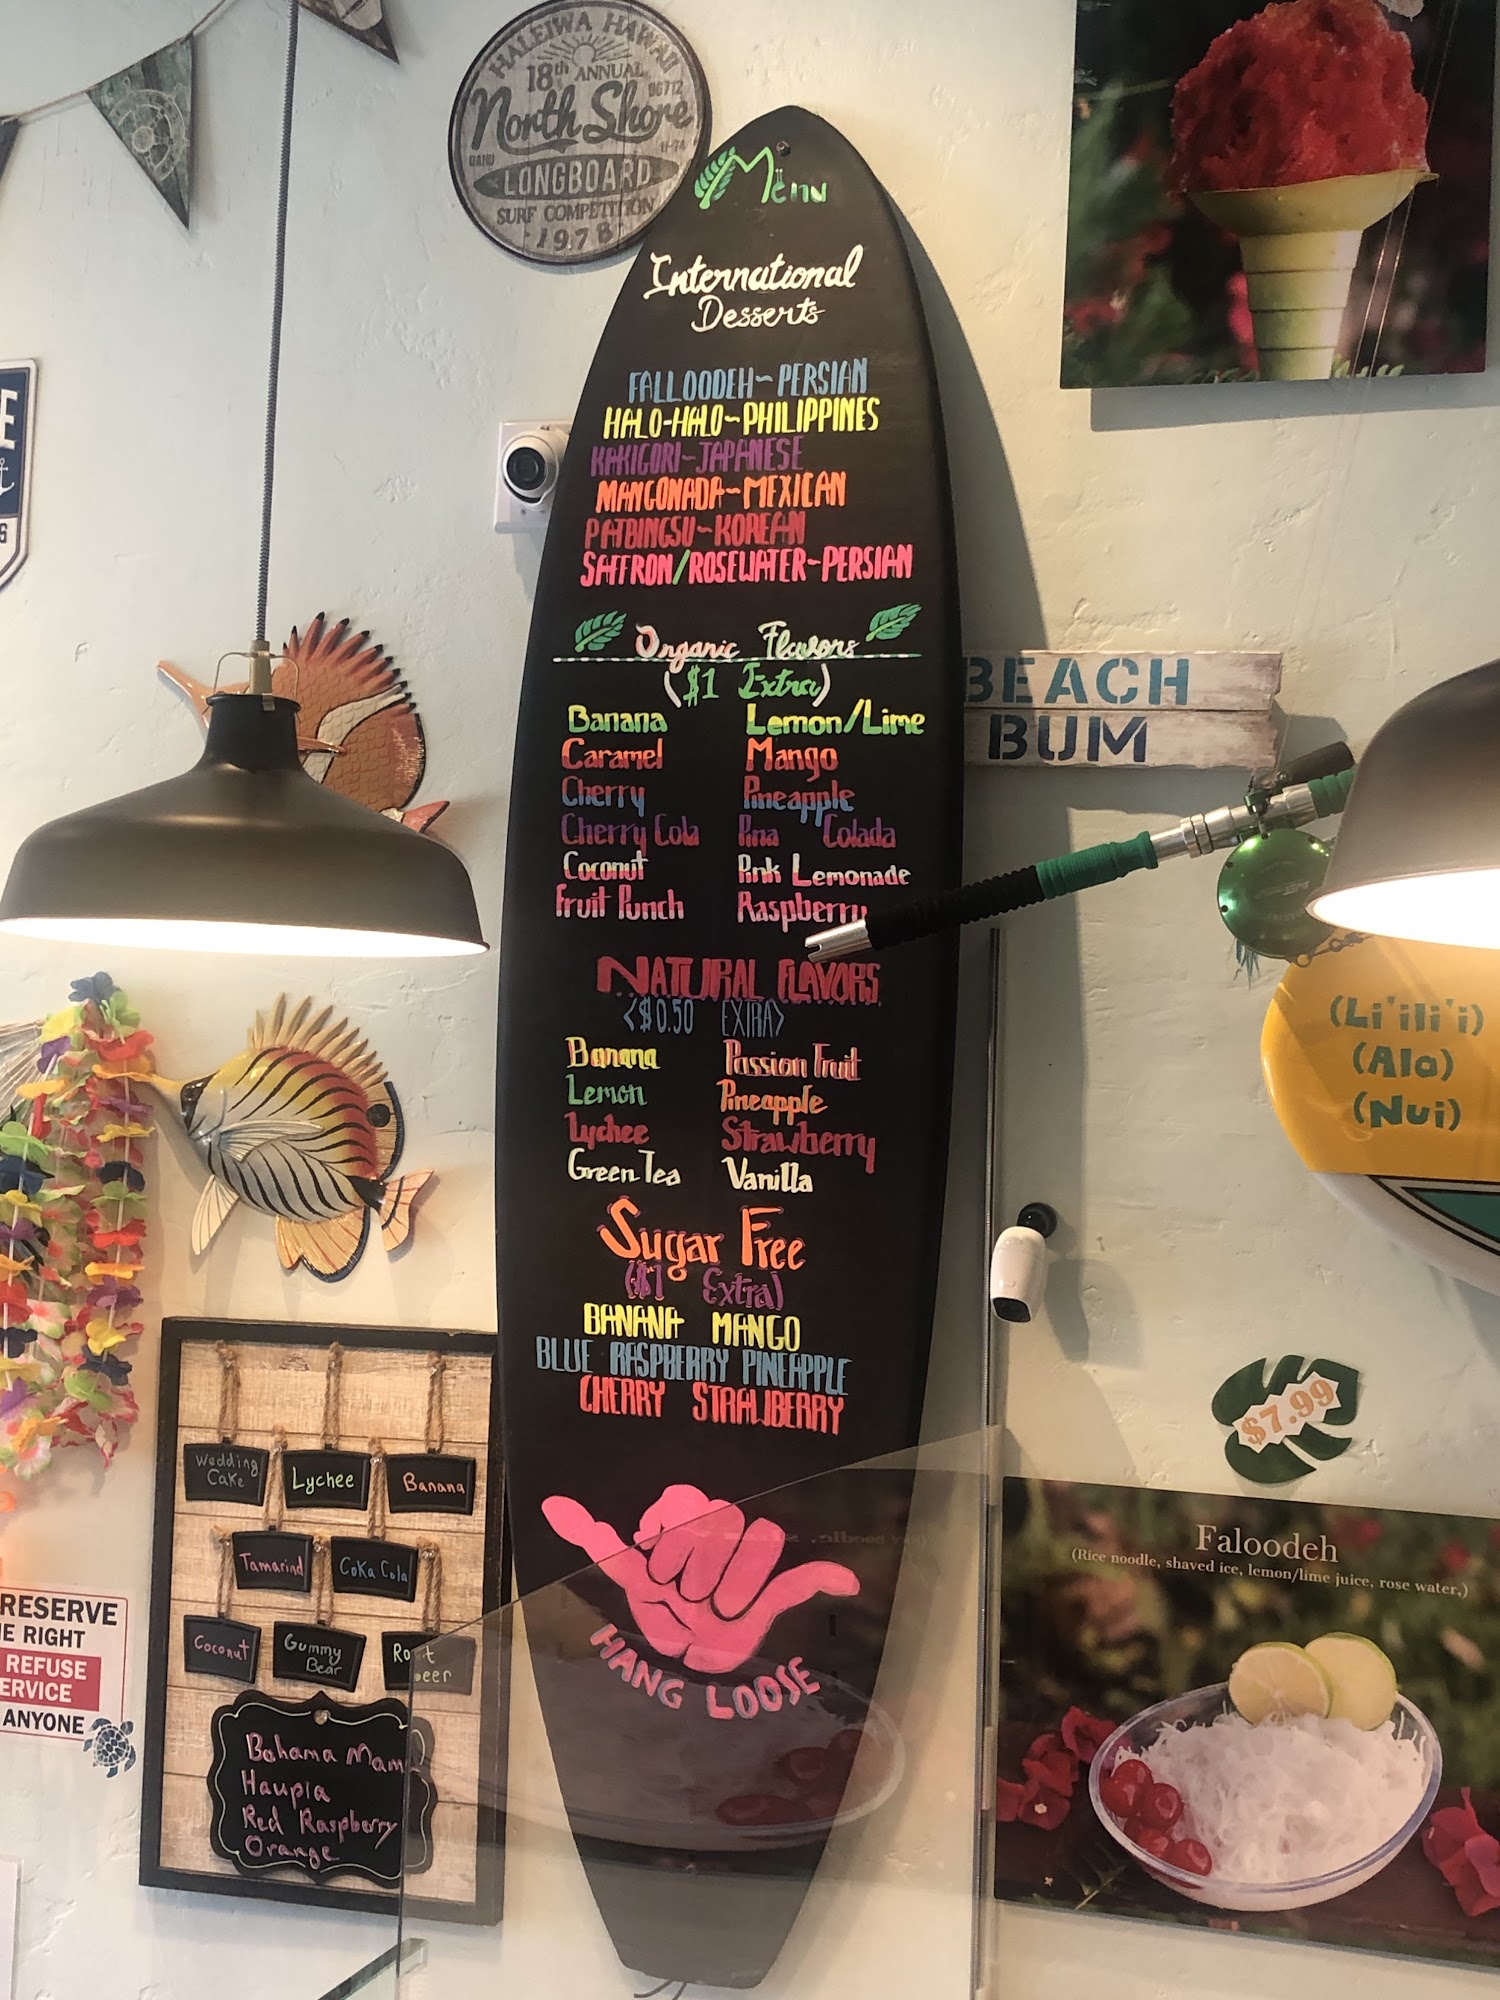 HALEIWA HAWAII
18th ANNUAL
96712
North Shore
OAHU
H-74
LONGBOARD
SURF COMPETITION
1978
Menu
International
Desserts
FALLOODEH~PERSIAN
HALO-HALO~PHILIPPINES
KAKIGORI~JAPANESE
MANGONADA~MEXICAN
PATBINGSU~KOREAN
SAFFRON/ROSEWATER~PERSIAN
Organic Flavors
($1 Extra)
Banana Lemon/Lime
Caramel Mango
Cherry Pineapple
Cherry Cola Pina Colada
Coconut Pink Lemonade
Fruit Punch Raspberry
NATURAL FLAVORS
<$0.50 EXTRA>
Banana Passion Fruit
Lemon Pineapple
Lychee Strawberry
Green Tea Vanilla
Sugar Free
($1 Extra)
BANANA MANGO
BLUE RASPBERRY PINEAPPLE
CHERRY STRAWBERRY
HANG LOOSE
BEACH
BUM
(Li'ili'i)
(Ala)
(Nui)
$7.99
Faloodeh
(Rice noodle, shaved ice, lemon/lime juice, rose water,)
Wedding
Cake
Lychee
Banana
Tamarind
Coka Cola
Coconut
Gummy
Bear
Bahama Mam
Haupia
Red Raspberry
Orange
RESERVE
RIGHT
REFUSE
ANYONE